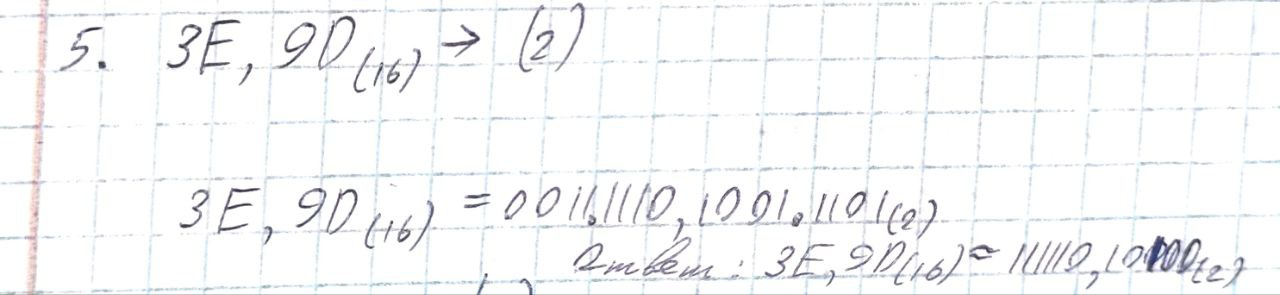 5. 3E, 9D(16) → (2)
3E, 9D(16) = 0011.1110, 1001.1101(2)
Ответ: 3E, 9D(16) ≈ 111110, 10100(2)